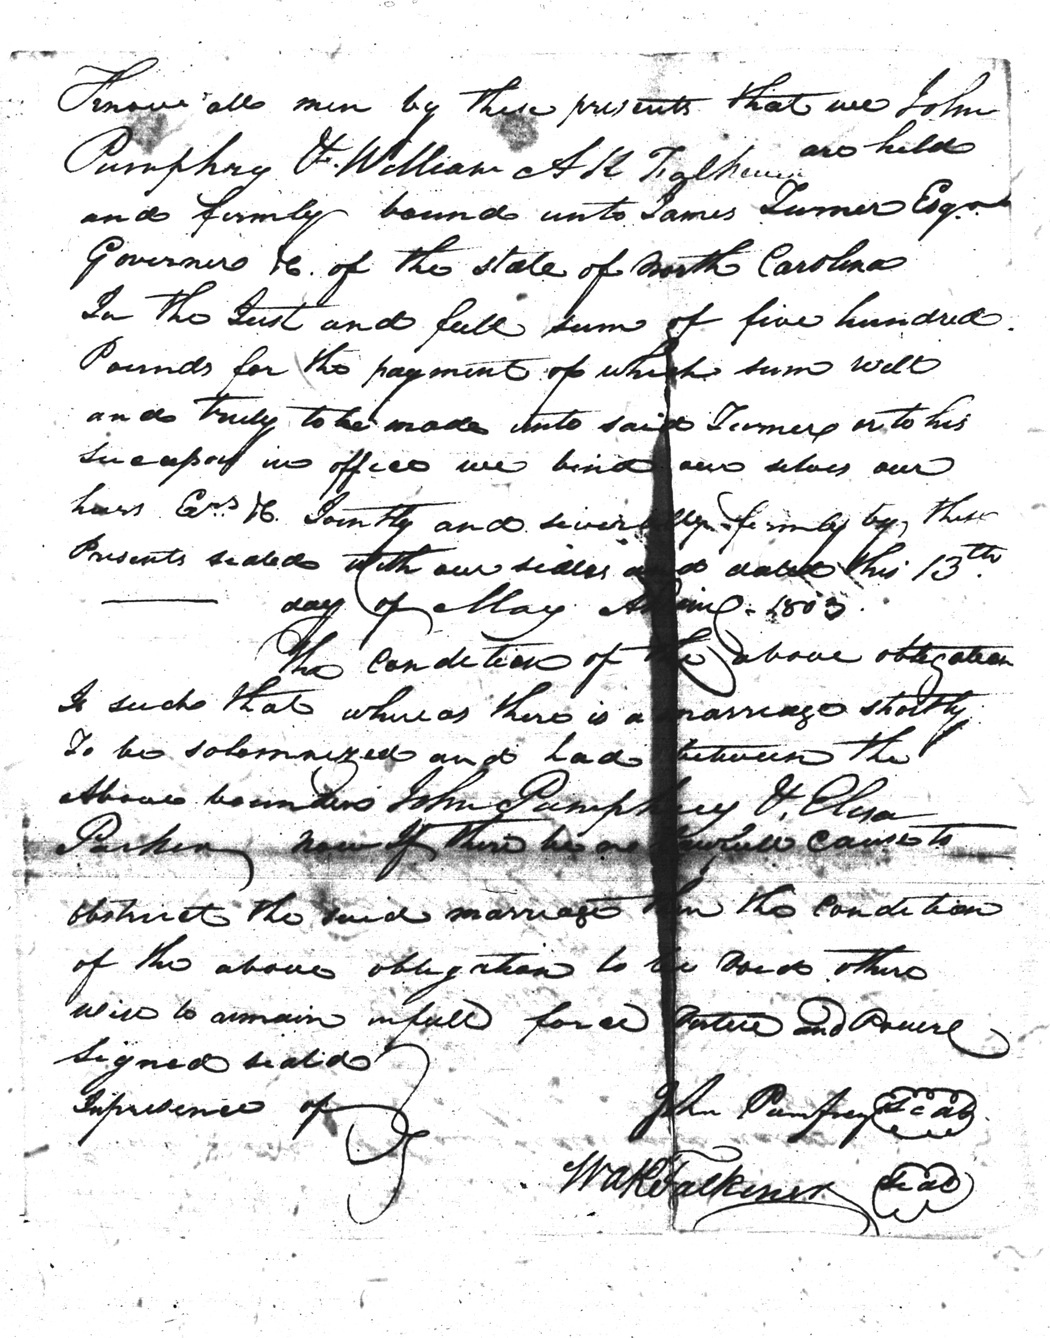 Know all men by these presents that we John
Pumphry & William A K Falkener are held
and firmly bound unto James Turner Esqr
Governer &c. of the state of North Carolina
In the Just and full sum of five hundred
Pounds for the payment of which sum well
and truly to be made unto said Turner or to his
successor in office we bind our selves our
heirs Exrs &c. Jointly and severally firmly by these
Presents sealed with our seales and dated this 13th
day of May 1803.
The condition of the above obligation
Is such that whereas there is a marriage shortly
To be solemnized and had between the
Above bounden John Pumphrey & Eliza
Parker now If there be no lawfull cause to
obstruct the said marriage then the condition
of the above obligation to be void other
wise to remain in full force virtue and Power
Signed sealed
In presence of
John Pumfrey Seal
WAK Falkener Seal